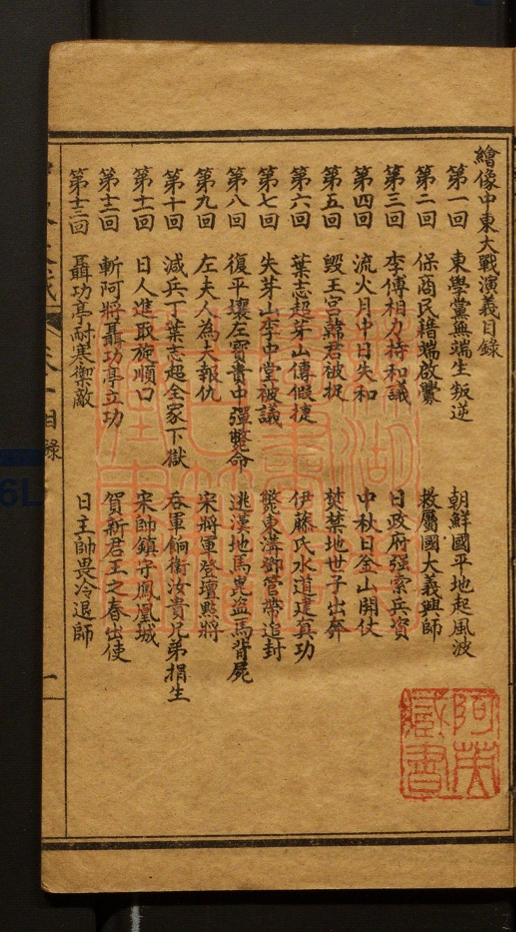 繪像中東大戰演義目錄
第一回 東學黨無端生叛逆 朝鮮國平地起風波
第二回 保商民藉端啟釁 救屬國大義興師
第三回 李傅相力持和議 日政府强索兵資
第四回 流火月中日失和 中秋日金山開仗
第五回 毁王宮韓君被捉 焚禁地世子出奔
第六回 葉志超芽山傳假捷 伊藤氏水道建真功
第七回 失芽山李中堂被議 斃東溝鄧管帶追封
第八回 復平壤左寶貴中彈斃命 逃漢地馬崑盗馬背屍
第九回 左夫人為夫報仇 宋將軍登壇點將
第十回 減兵丁葉志超全家下獄 吞軍餉衛汝貴兄弟捐生
第十一回 日人進取旅順口 宋帥鎮守鳳凰城
第十二回 斬阿將聶功亭立功 賀新君王之春出使
第十三回 聶功亭耐寒禦敵 日主帥畏冷退師
目錄
一
藏書
6L